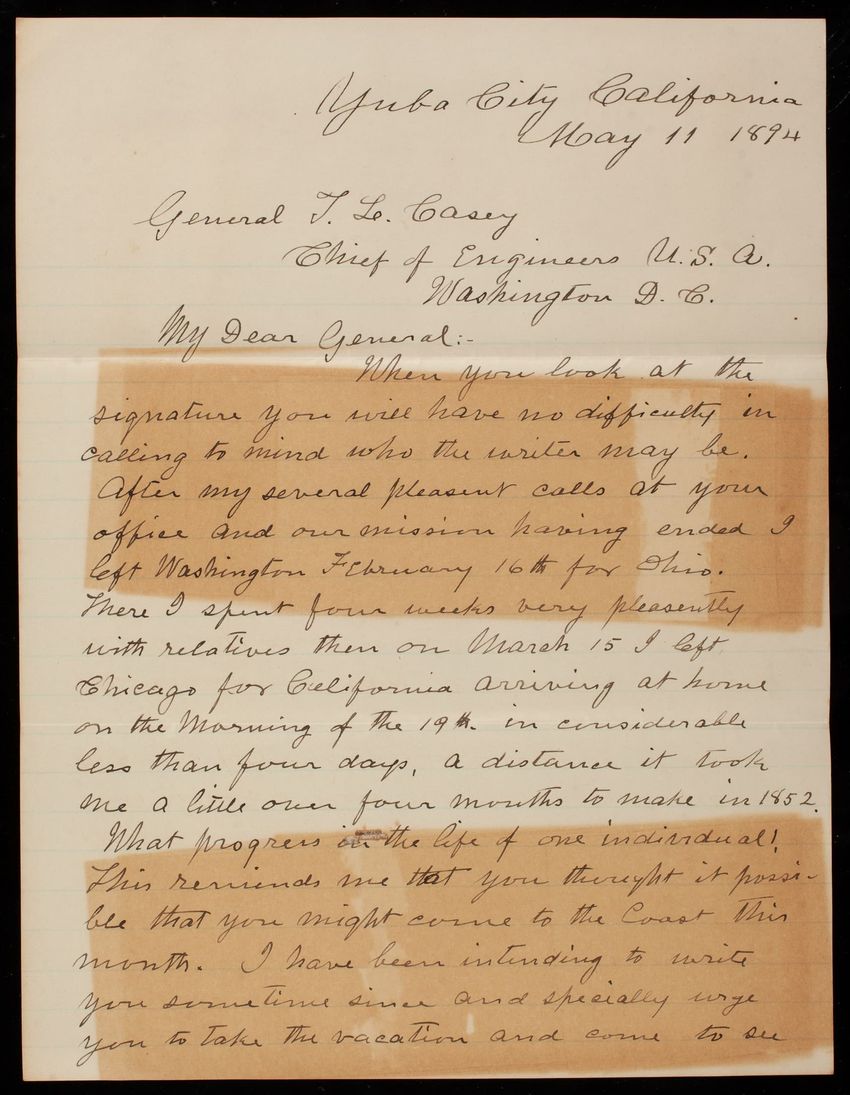 Yuba City California
May 11 1894
General T. L. Casey
Chief of Engineers U.S.A.
Washington D.C.
My Dear General:-
When you look at the
signature you will have no difficulty in
calling to mind who the writer may be.
After my several pleasent calls at your
office and our mission having ended I
left Washington February 16th for Ohio.
There I spent four weeks very pleasently
with relatives then on March 15 I left
Chicago for California arriving at home
on the Morning of the 19th. in considerable
less than four days, a distance it took
me a little over four months to make in 1852.
What progress in the life of one individual!
This reminds me that you thought it possi-
ble that you might come to the Coast this
month. I have been intending to write
you sometime since and specially urge
you to take the vacation and come to see